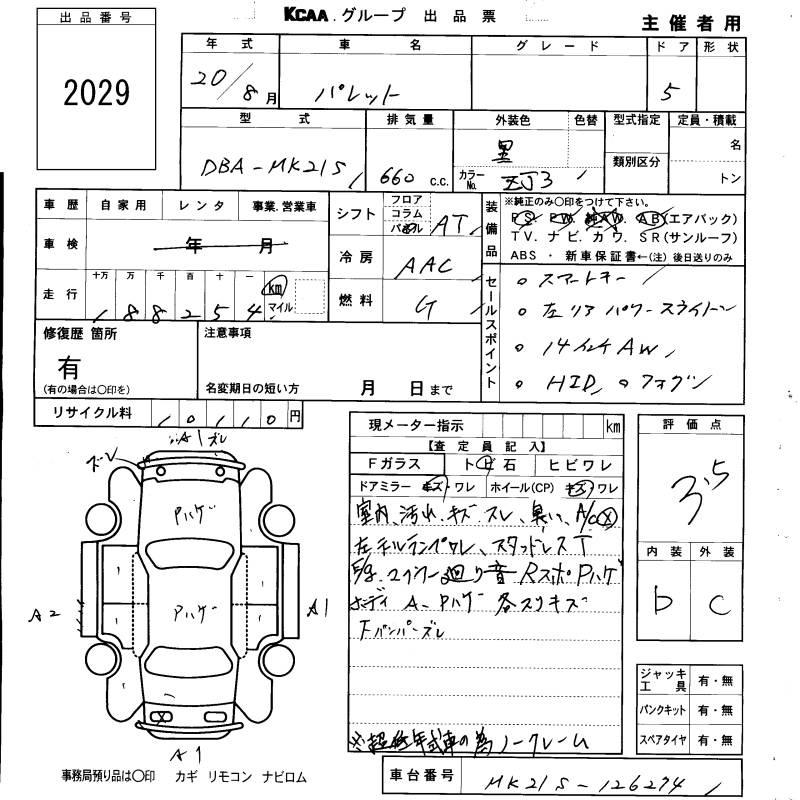 出品番号
2029
KCAA.グループ 出品票
主催者用
年式 車名 グレード ドア 形状
20/8月 パレット 5
型式 排気量 外装色 色替 型式指定 定員・積載
DBA-MK21S 660 c.c. 黒 カラーNo. ZJ3 類別区分 名
トン
車歴 自家用 レンタ 事業.営業車
車検 年 月
走行 十万 万 千 百 十 一 km マイル
188254
シフト フロア コラム パネル AT
冷房 AAC
燃料 G
装備品
※純正のみ○印をつけて下さい。
PS. PW. 純AW. AB(エアバック)
TV. ナビ. カワ. SR(サンルーフ)
ABS ・ 新車保証書←(注)後日送りのみ
セールスポイント
○ スマートキー
○ 左リアパワースライドドア
○ 14インチAW
○ HID ○ フォグ
修復歴 箇所
有
(有の場合は○印を)
注意事項
名変期日の短い方 月 日まで
リサイクル料 10110円
現メーター指示 km
【査定員記入】
Fガラス トビ石 ヒビワレ
ドアミラー キズ ワレ ホイール(CP) キズ ワレ
室内、汚れ、キズ、スレ、臭い、A/C
左テルランプワレ、スタッドレスT
廻り音 RスポPハゲ
ボディ A、Pハゲ 各スリキズ
Fバンパーズレ
※超低年式車の為ノークレーム
評価点
3.5
内装 外装
b c
ジャッキ工具 有・無
パンクキット 有・無
スペアタイヤ 有・無
車台番号 MK21S-126274
A1 ズレ
ズレ
Pハゲ
Pハゲ
A2
A1
A1
事務局預り品は○印 カギ リモコン ナビロム